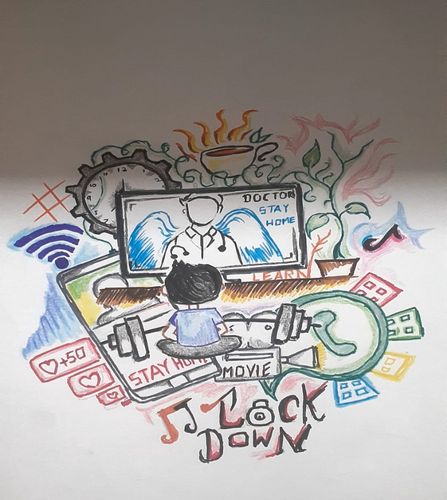 12
DOCTOR
STAY
HOME
LEARN
+50
STAY HOME
MOVIE
LOCK
DOWN